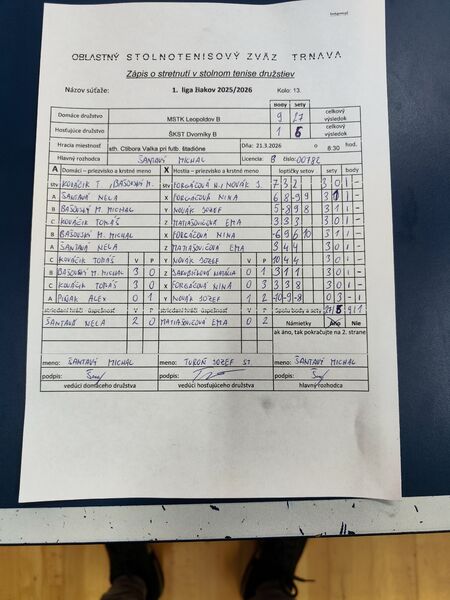 OBLASTNÝ STOLNOTENISOVÝ ZVÄZ TRNAVA
Zápis o stretnutí v stolnom tenise družstiev
Názov súťaže: 1. liga žiakov 2025/2026 Kolo: 13.
Body Sety
Domáce družstvo MSTK Leopoldov B 9 27 celkový výsledok
Hosťujúce družstvo ŠKST Dvorníky B 1 5 celkový výsledok
Hracia miestnosť sth. Ctibora Valka pri futb. štadióne Dňa: 21.3.2026 o 8:30 hod.
Hlavný rozhodca ŠANTAVÝ MICHAL Licencia: B číslo: 00782
A Domáci - priezvisko a krstné meno X Hostia - priezvisko a krstné meno loptičky setov sety body
štv KOVÁČIK T., BAŠOVSKÝ M. štv FORGÁČOVÁ N., NOVÁK J. 7 3 2 3 0 1 -
A ŠANTAVÁ NELA X FORGÁČOVÁ NINA 6 8 -9 9 3 1 1 -
B BAŠOVSKÝ M. MICHAL Y NOVÁK JOZEF 5 -8 9 8 3 1 1 -
C KOVÁČIK TOMÁŠ Z MATIAŠOVIČOVÁ EMA 3 3 3 3 0 1 -
B BAŠOVSKÝ M. MICHAL X FORGÁČOVÁ NINA -6 9 6 10 3 1 1 -
A ŠANTAVÁ NELA Z MATIAŠOVIČOVÁ EMA 3 4 4 3 0 1 -
C KOVÁČIK TOMÁŠ V P Y NOVÁK JOZEF V P 10 4 4 3 0 1 -
B BAŠOVSKÝ M. MICHAL 3 0 Z 0 1 3 1 1 3 0 1 -
C KOVÁČIK TOMÁŠ 3 0 X FORGÁČOVÁ NINA 0 3 3 3 8 3 0 1 -
A ALEX 0 1 Y NOVÁK JOZEF 1 2 -10 -9 -8 0 3 - 1
striedaní hráči úspešnosť striedaní hráči úspešnosť Spolu body a sety 27 5 9 1
ŠANTAVÁ NELA 2 0 MATIAŠOVIČOVÁ EMA 0 2 Námietky Áno Nie
ak áno, tak pokračujte na 2. strane
meno: ŠANTAVÝ MICHAL meno: TUROŇ JOZEF ST. meno: ŠANTAVÝ MICHAL
podpis: podpis: podpis:
vedúci domáceho družstva vedúci hosťujúceho družstva hlavný rozhodca